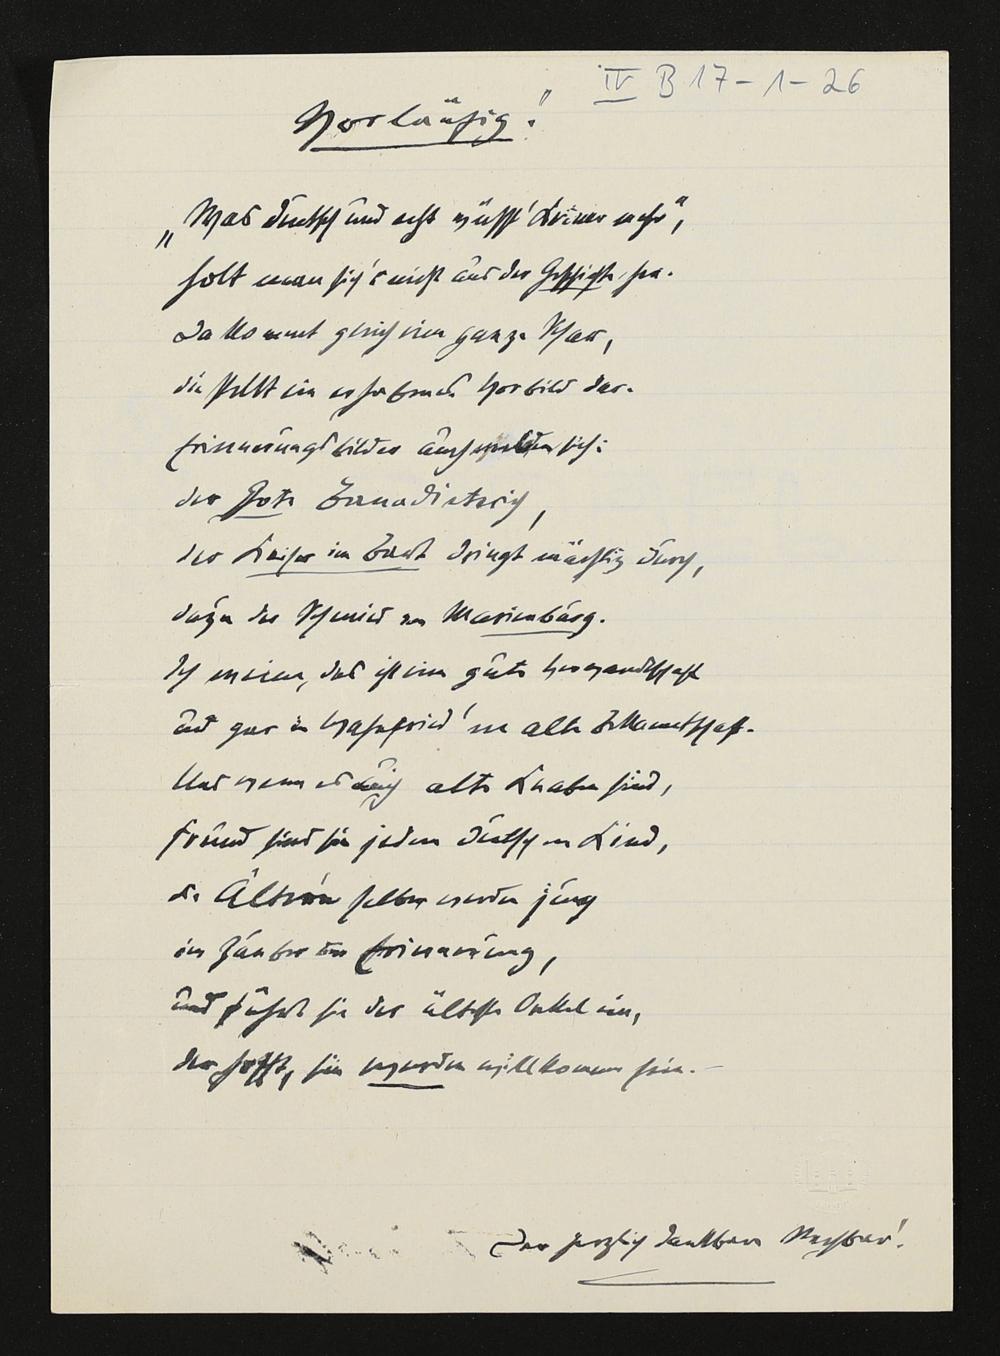 IV B 17-1-26
Vorläufig!
„Was deutsch und echt wüsst' Keiner mehr",
holt man sich's nicht aus der Geschichte her.
Da kommt gleich eine ganze Schar,
die stellt ein erhabenes Vorbild dar.
Erinnerungsbilder auch melden sich:
der Gote Bernadietrich,
der Kaiser im Bart dringt mächtig durch,
dazu der Schmied von Marienburg.
Ich meine, das ist eine gute Verwandtschaft
und gar in Wahnfried 'ne alte Bekanntschaft.
Und wenn es auch alte Knaben sind,
Freund sind sie jedem deutschen Kind,
die Ältern selber werden jung
im Zauber der Erinnerung,
und führt sie der älteste Onkel ein,
der hofft, sie werden willkommen sein.
Der herzlich dankbare Nachbar!